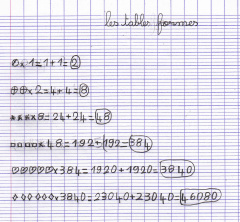 les tables formes
○x1=1+1=2
○○x2=4+4=8
***x8=24+24=48
□□□□x48=192+192=384
♡♡♡♡♡x384=1920+1920=3840
◇◇◇◇◇◇x3840=23040+23040=46080